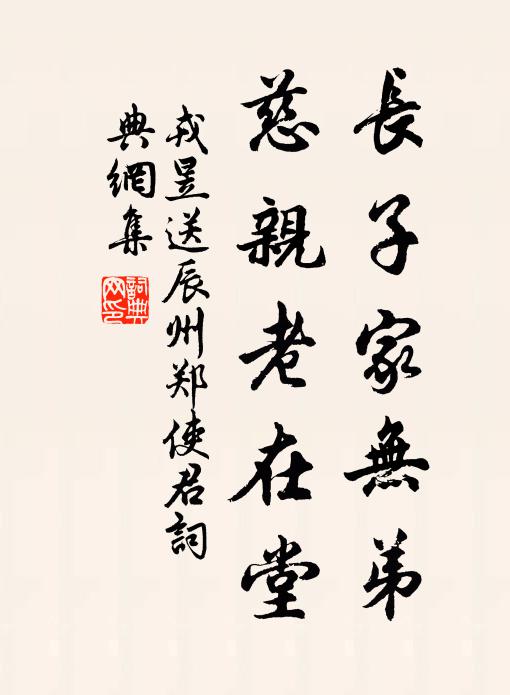 長子家無弟
慈親老在堂
戎昱送辰州郑使君詞
典網集
詞典
网印